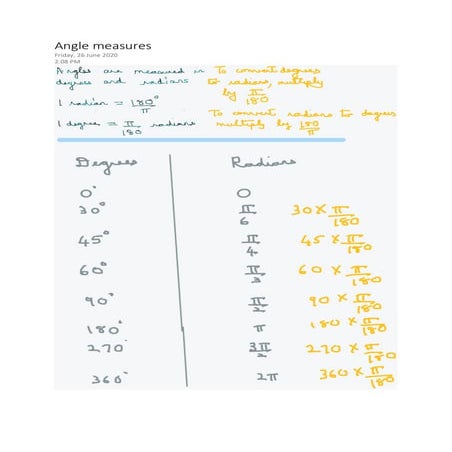 Angle measures
Friday, 26 June 2020
2:08 PM
Angles are measured in
degrees and radians
1 radian = 180°/π
1 degree = π/180 radians
To convert degrees
to radians, multiply
by π/180
To convert radians to degrees
multiply by 180/π
Degrees Radians
0° 0
30° π/6 30 × π/180
45° π/4 45 × π/180
60° π/3 60 × π/180
90° π/2 90 × π/180
180° π 180 × π/180
270° 3π/2 270 × π/180
360° 2π 360 × π/180